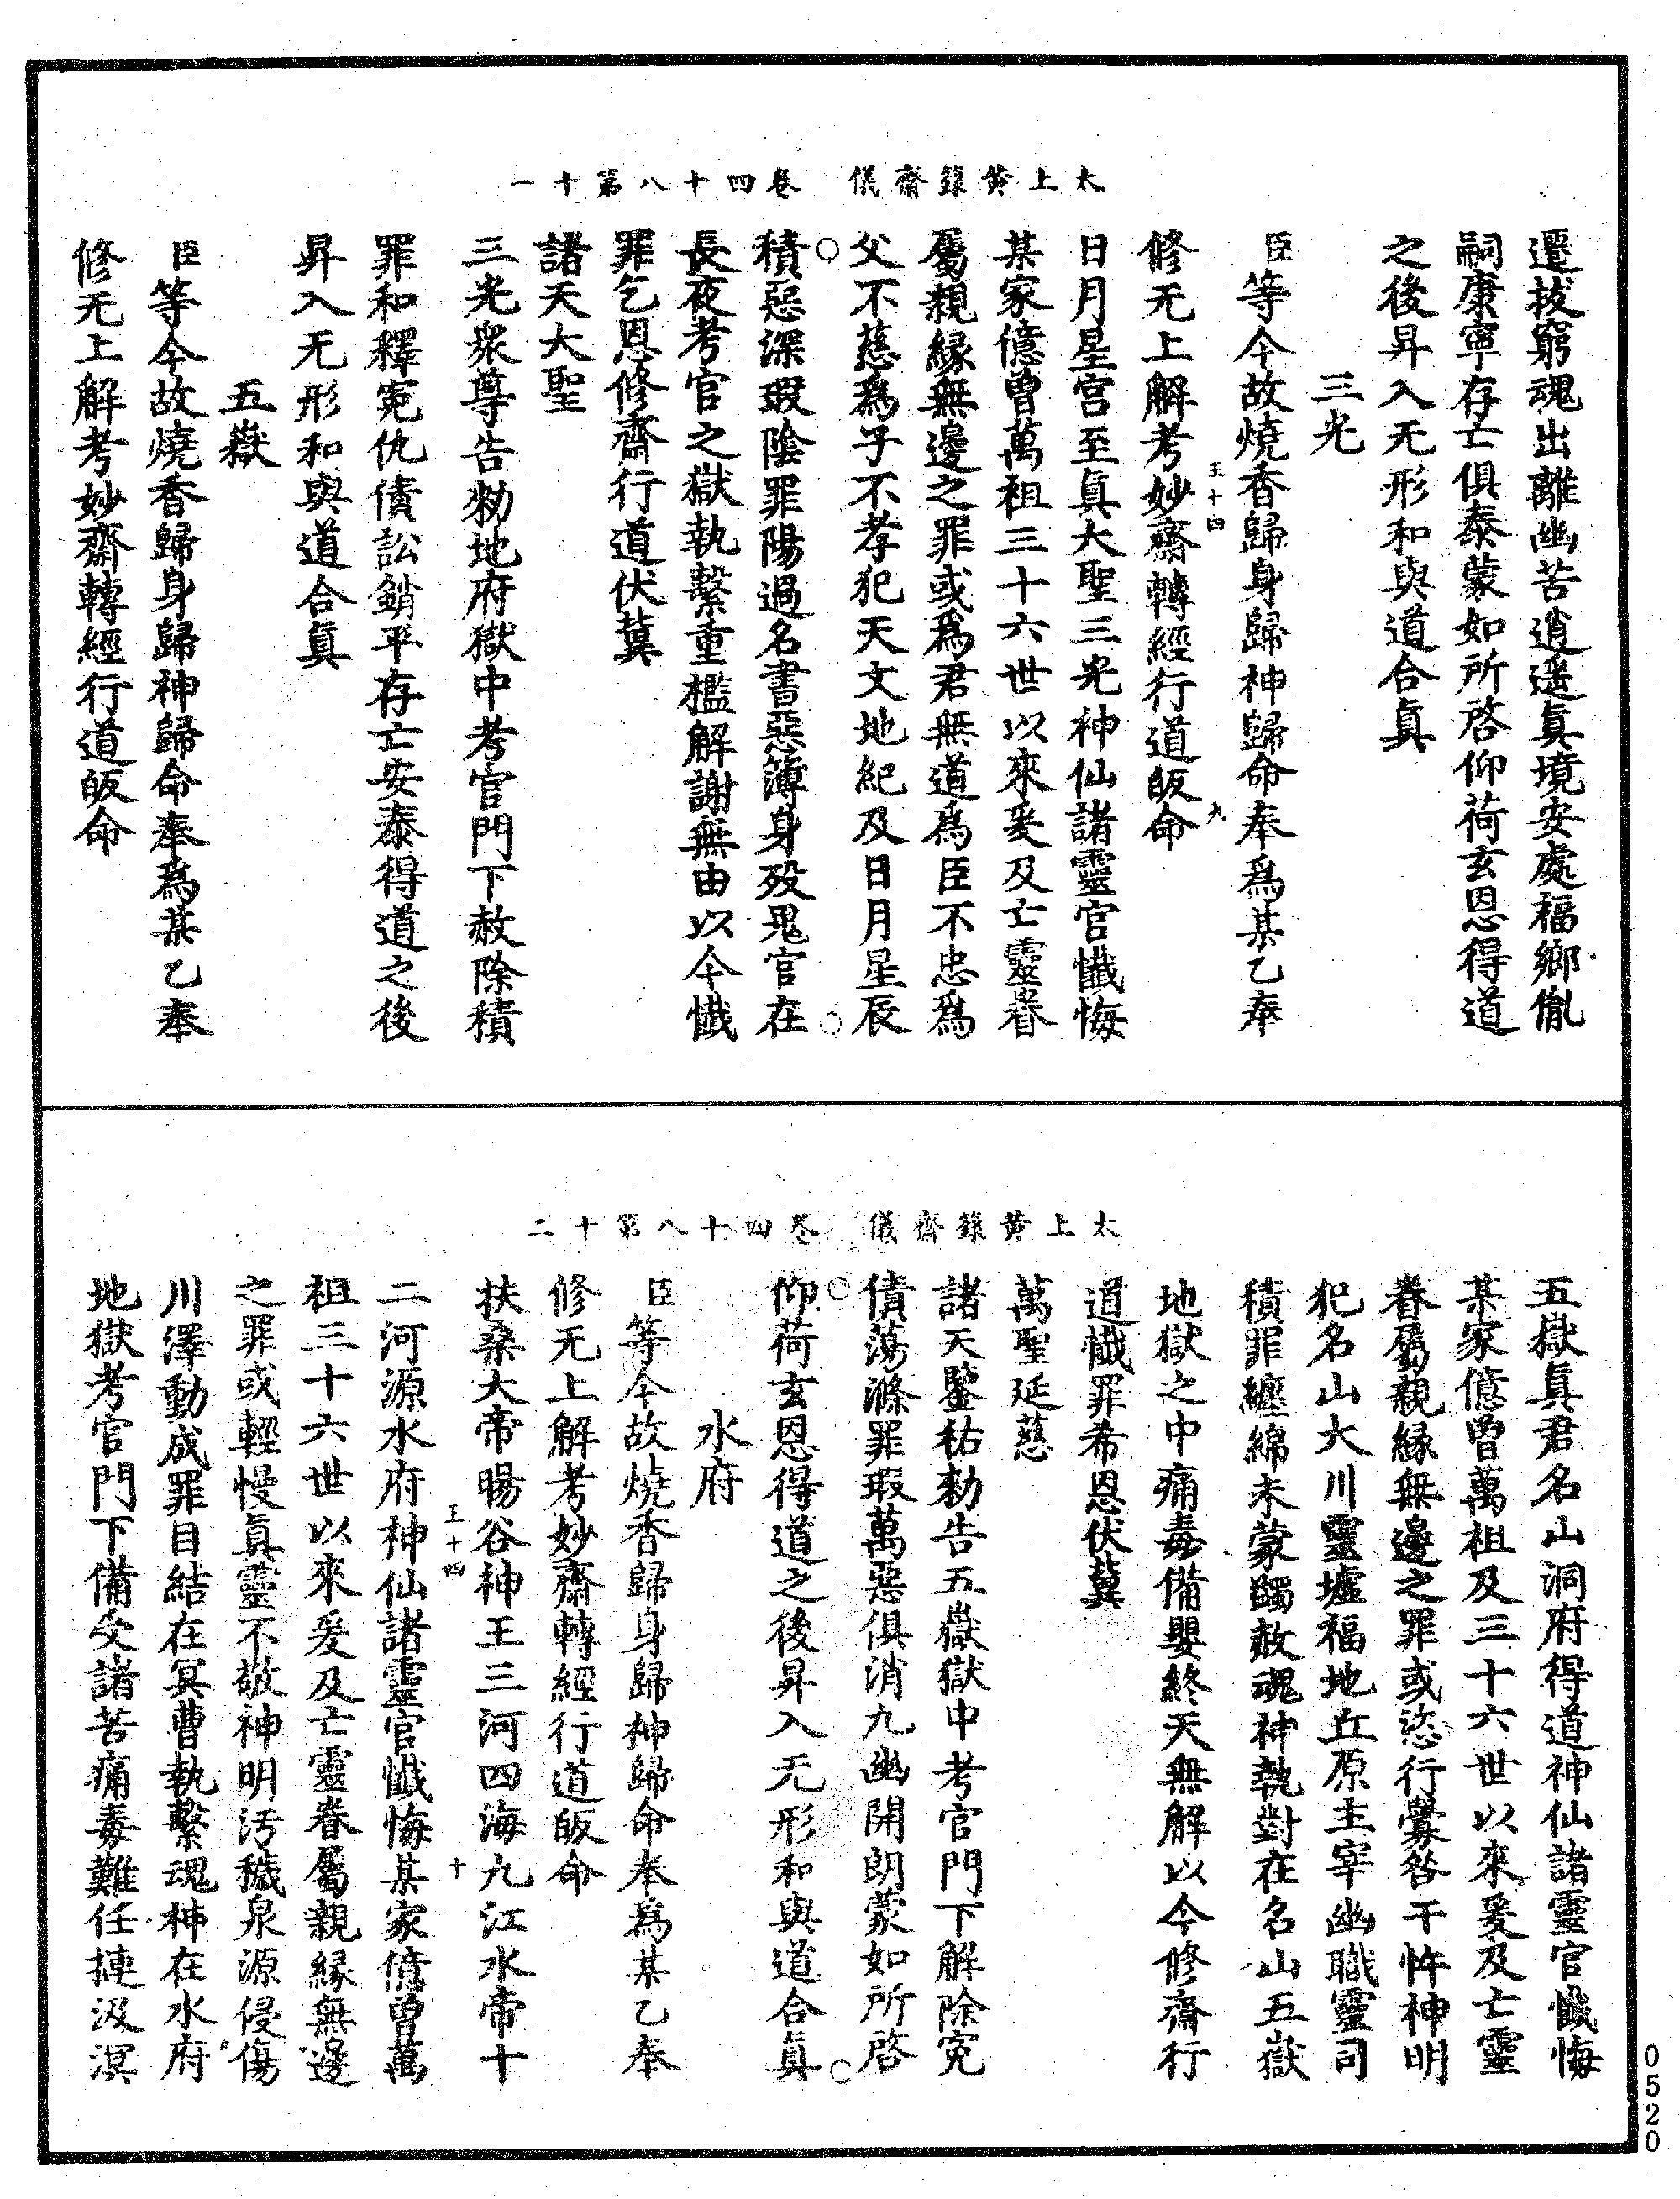 太上黃籙齋儀　卷四十八第十一
遷拔窮魂出離幽苦逍遙眞境安處福鄉胤
嗣康寧存亡俱泰蒙如所啓仰荷玄恩得道
之後昇入无形和與道合眞
三光
臣等今故燒香歸身歸神歸命奉爲某乙奉
王十四　九
修无上解考妙齋轉經行道皈命
日月星宮至眞大聖三光神仙諸靈官懺悔
某家億曾萬祖三十六世以來爰及亡靈眷
屬親緣無邊之罪或爲君無道爲臣不忠爲
父不慈爲子不孝犯天文地紀及日月星辰
積惡深瑕陰罪陽過名書惡簿身歿鬼官在
長夜考官之獄執繫重檻解謝無由以今懺
罪乞恩修齋行道伏冀
諸天大聖
三光衆尊告勑地府獄中考官門下赦除積
罪和釋寃仇債訟銷平存亡安泰得道之後
昇入无形和與道合眞
五嶽
臣等今故燒香歸身歸神歸命奉爲某乙奉
修无上解考妙齋轉經行道皈命
太上黃籙齋儀　卷四十八第十二
五嶽眞君名山洞府得道神仙諸靈官懺悔
某家億曾萬祖及三十六世以來爰及亡靈
眷屬親緣無邊之罪或恣行釁咎干忤神明
犯名山大川靈墟福地丘原主宰幽職靈司
積罪纏綿未蒙蠲赦魂神執對在名山五嶽
地獄之中痛毒備嬰終天無解以今修齋行
道懺罪希恩伏冀
萬聖延慈
諸天鑒祐勑告五嶽獄中考官門下解除寃
債蕩滌罪瑕萬惡俱消九幽開朗蒙如所啓
仰荷玄恩得道之後昇入无形和與道合眞
水府
臣等今故燒香歸身歸神歸命奉爲某乙奉
修无上解考妙齋轉經行道皈命
扶桑大帝暘谷神王三河四海九江水帝十
王十四　十
二河源水府神仙諸靈官懺悔某家億曾萬
祖三十六世以來爰及亡靈眷屬親緣無邊
之罪或輕慢眞靈不敬神明汚穢泉源侵傷
川澤動成罪目結在冥曹執繫魂神在水府
地獄考官門下備受諸苦痛毒難任摙汲溟
0520